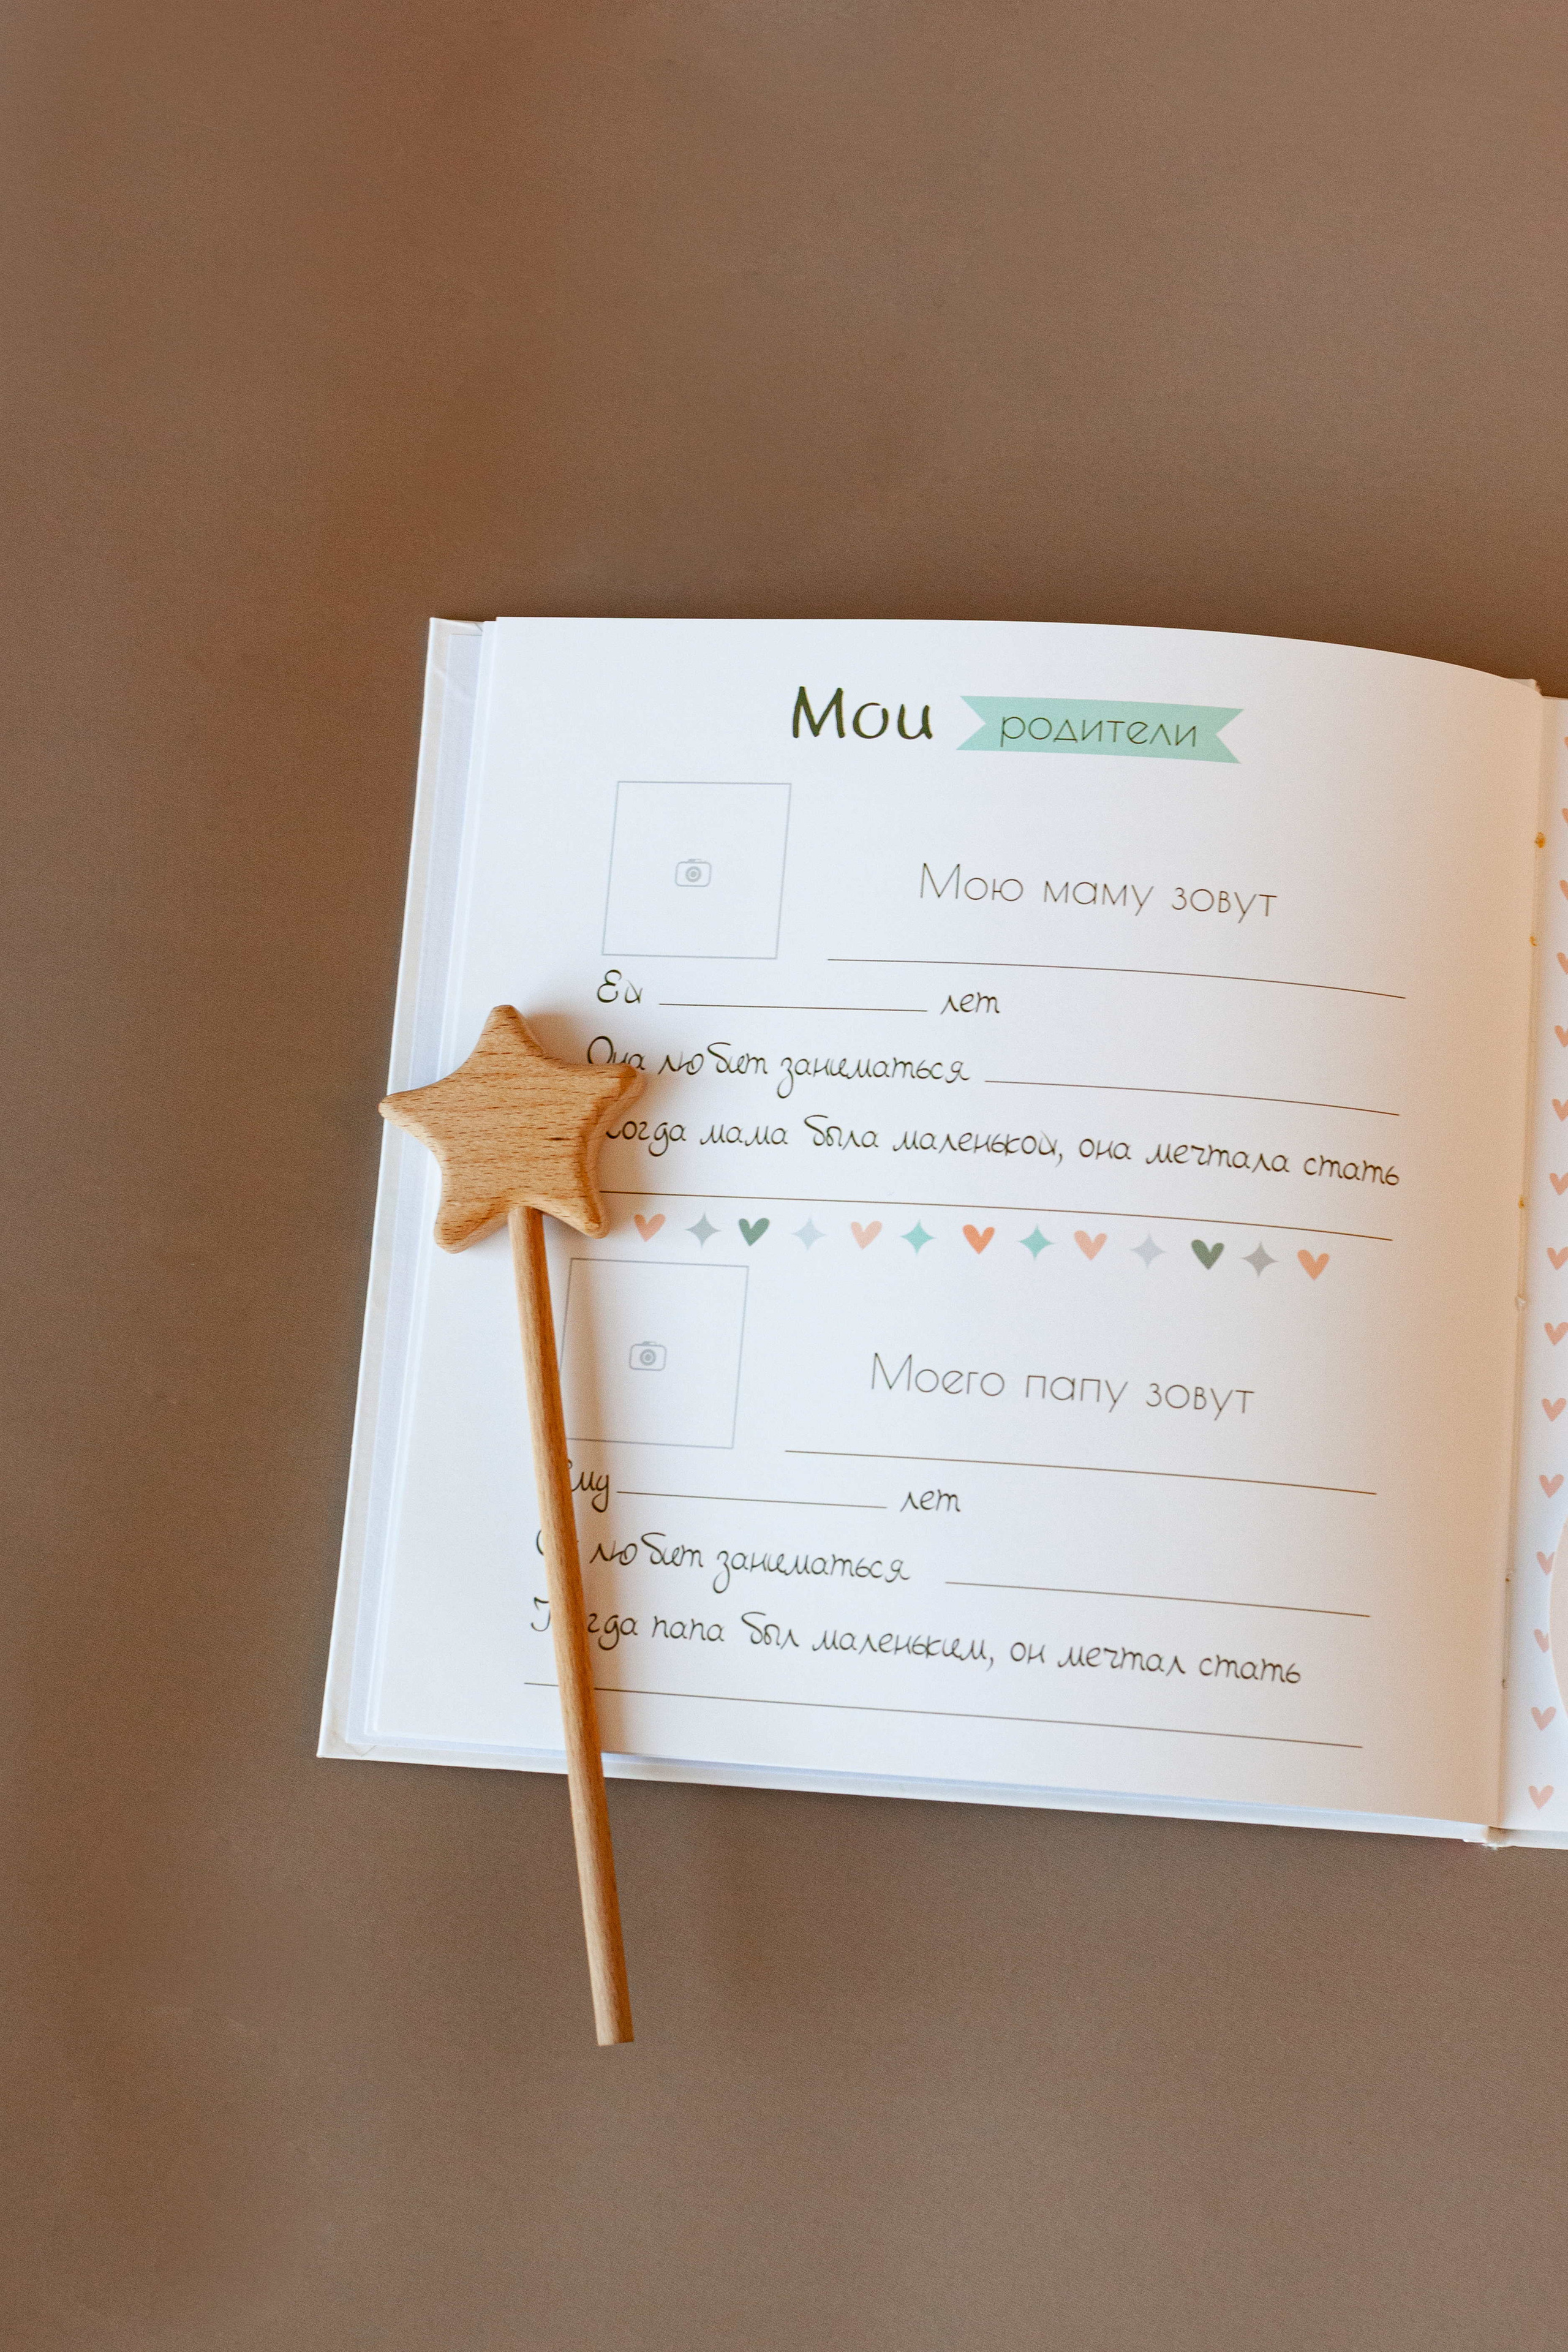 Мои родители
Мою маму зовут
Ей лет
Она любит заниматься
когда мама была маленькой, она мечтала стать
Моего папу зовут
Ему лет
любит заниматься
Когда папа был маленьким, он мечтал стать